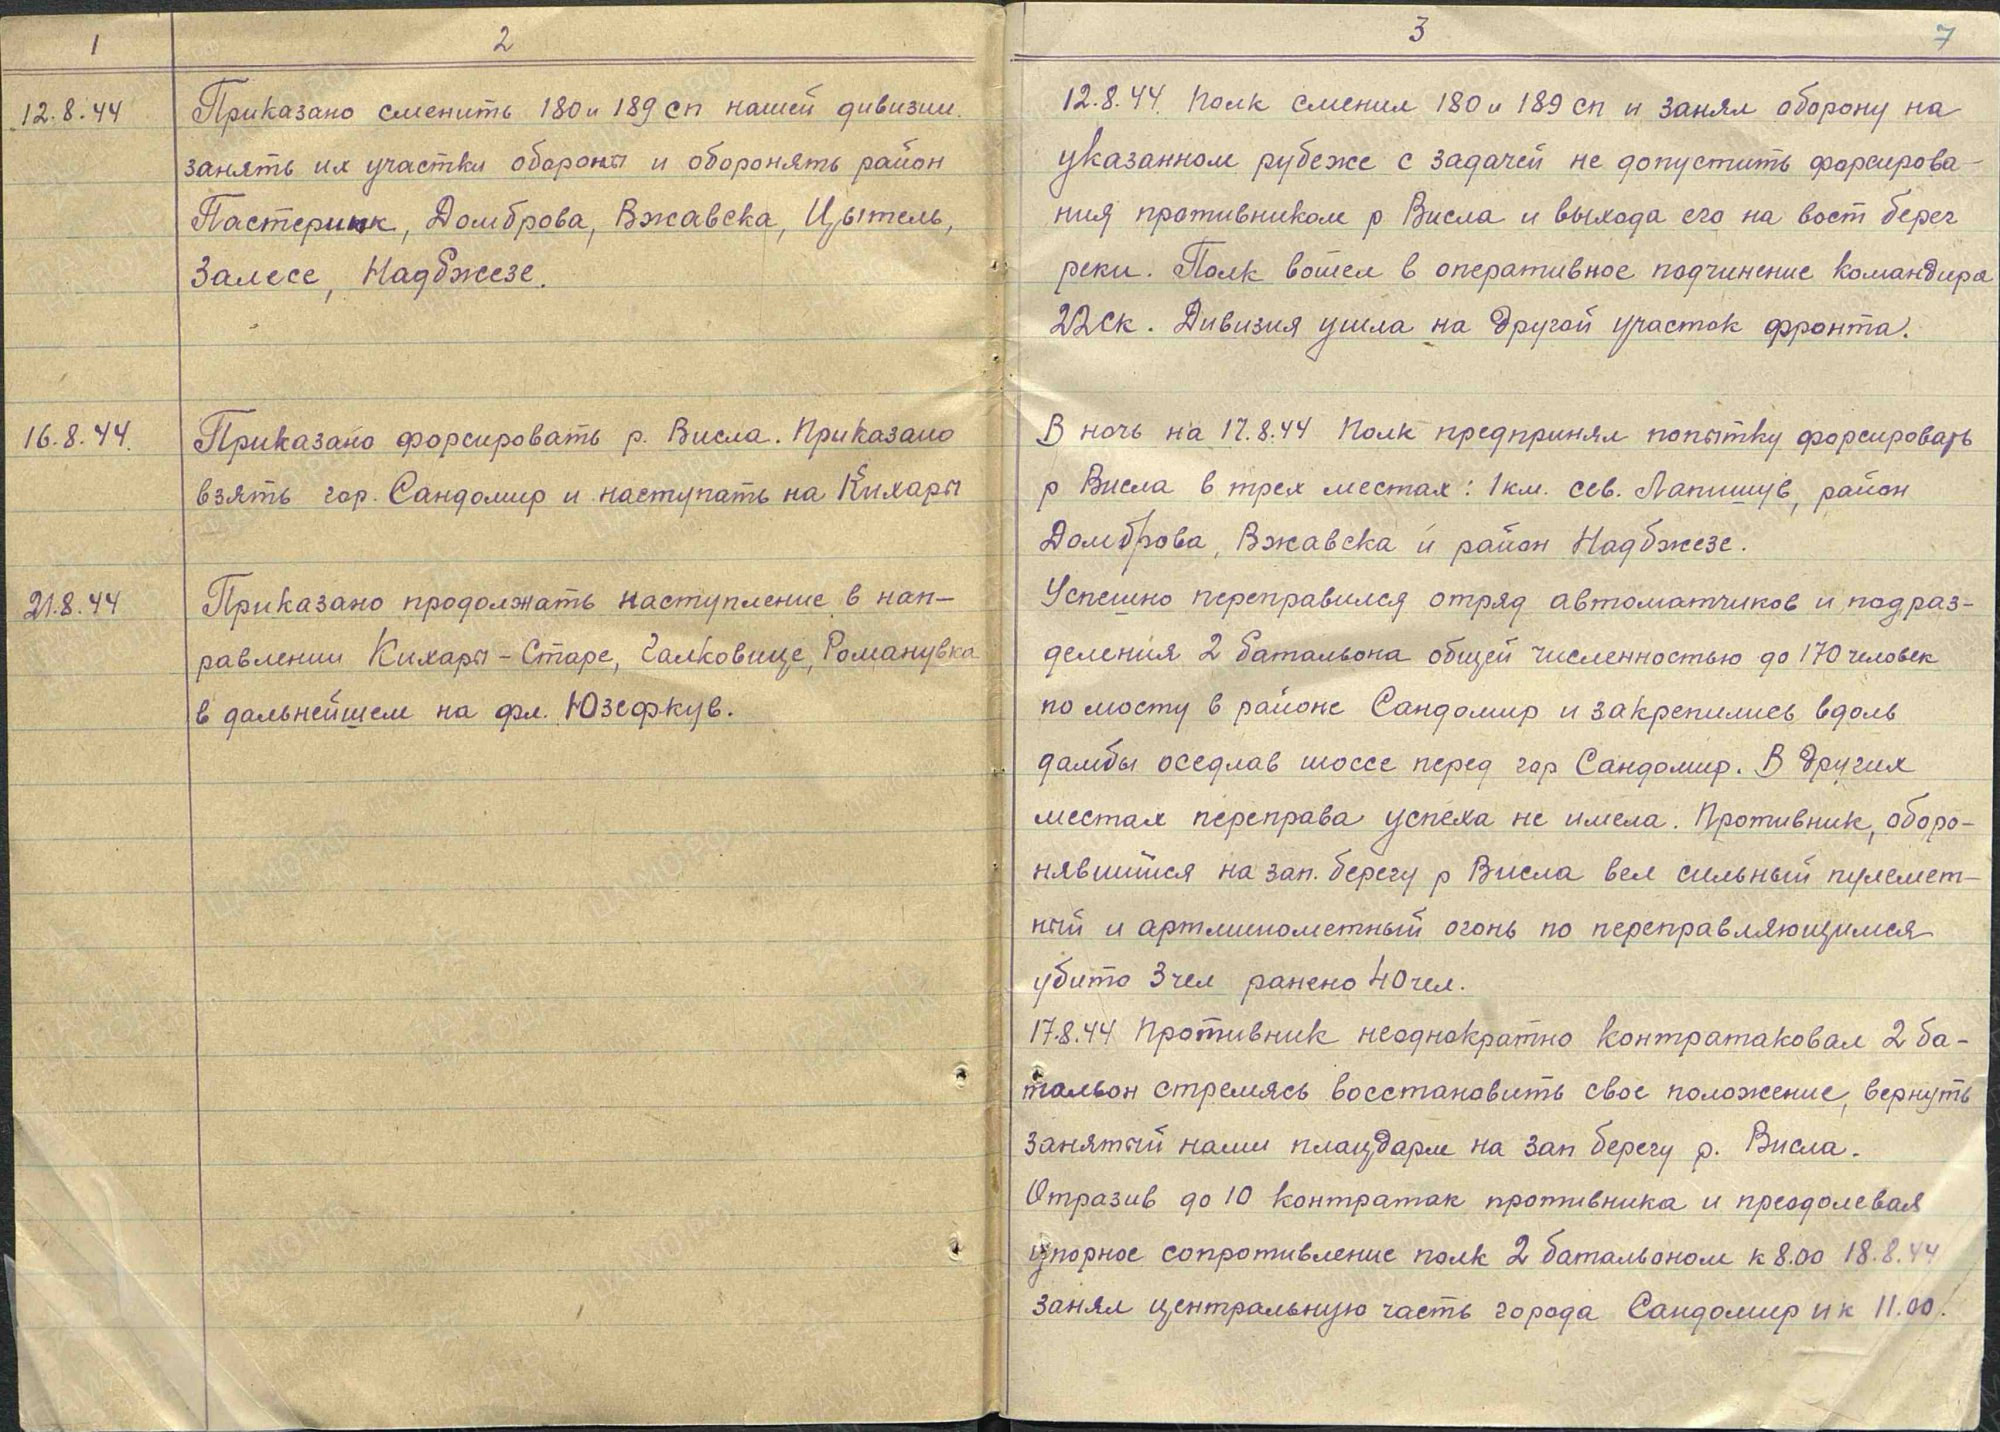 1
2
12.8.44
Приказано сменить 180 и 189 сп нашей дивизии.
занять их участки обороны и оборонять район
Пастерник, Домброва, Вжавска, Цытель,
Залесе, Надбжезе.
16.8.44.
Приказано форсировать р. Висла. Приказано
взять гор. Сандомир и наступать на Кихары
21.8.44
Приказано продолжать наступление в нап-
равлении Кихары-Старе, Галковице, Романувка
в дальнейшем на фл. Юзефкув.
3
7
12.8.44. Полк сменил 180 и 189 сп и занял оборону на
указанном рубеже с задачей не допустить форсирова-
ния противником р Висла и выхода его на вост берег
реки. Полк вошел в оперативное подчинение командира
22ск. Дивизия ушла на другой участок фронта.
В ночь на 17.8.44 Полк предпринял попытку форсировать
р Висла в трех местах: 1км. сев. Лапишув, район
Домброва, Вжавска и район Надбжезе.
Успешно переправился отряд автоматчиков и подраз-
деления 2 батальона общей численностью до 170 человек
по мосту в районе Сандомир и закрепились вдоль
дамбы оседлав шоссе перед гор Сандомир. В других
местах переправа успеха не имела. Противник, оборо-
нявшийся на зап. берегу р Висла вел сильный пулемет-
ный и артминометный огонь по переправляющимся
убито 3 чел ранено 40 чел.
17.8.44 Противник неоднократно контратаковал 2 ба-
тальон стремясь восстановить свое положение, вернуть
занятый нами плацдарм на зап берегу р. Висла.
Отразив до 10 контратак противника и преодолевая
упорное сопротивление полк 2 батальоном к 8.00 18.8.44
занял центральную часть города Сандомир и к 11.00.